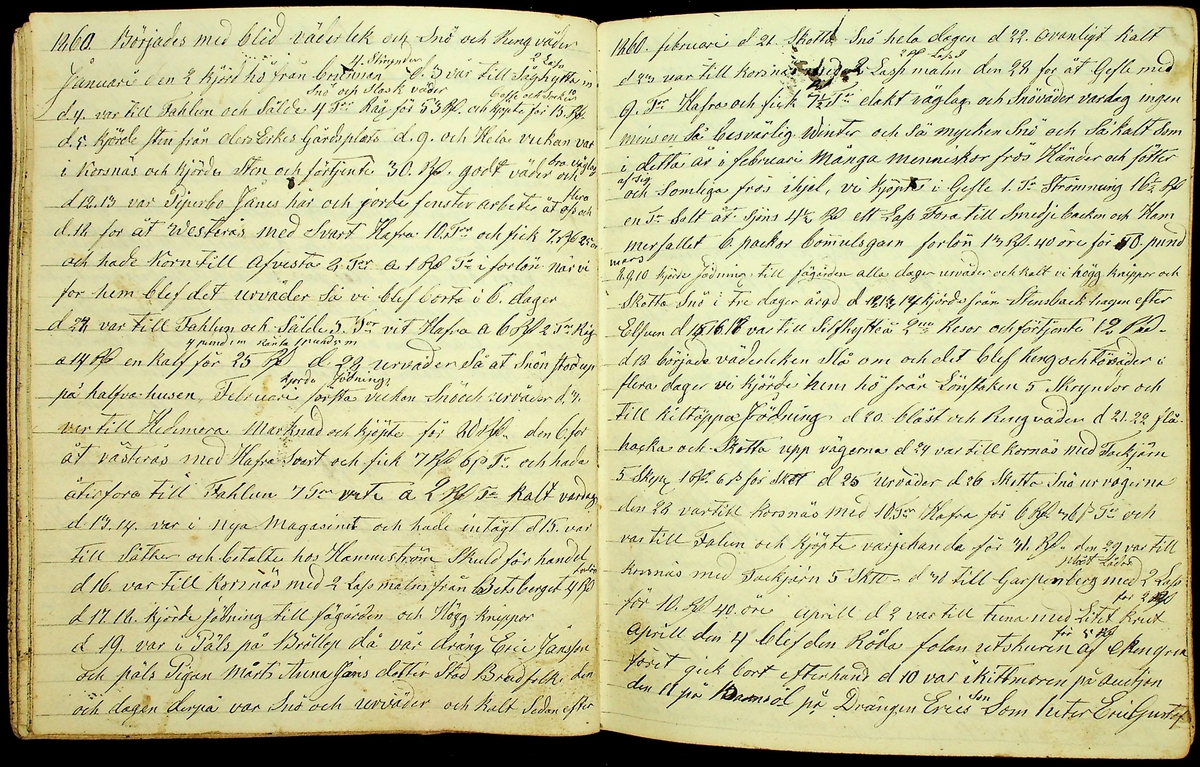 1860. Börjades med blid väderlek och Snö och Rengväder
4 Skrynder 2 Lass
Januari den 2 kjörd hö från brunnan d. 3 var till Säghyttan
Snö och slask väder
d 4. var till Fahlun och Sålde 4 Tnr Råg för 53 Rd. och kjöpte för 15 Rd
d. 5 kjörde Sten från Gårdsplats d. 9. och Hela veckan var
i Korsnäs och kjörde Sten och förtjente 30 Rd. godt väder och bra väglag
d 12. 13 var Piperbo Jänes här och gorde fenster arbeter åt oss och
d. 16 for åt Westerås med Svart Hafra 10 Tnr och fick 7 Rd 25
och hade Korn till Afvesta 2 Tnr a 1 Rd Tn i forlön när vi
for hem blef det urväder Så vi blef borte i 6. dager
d 24 var till Fahlun och Sålde 3. Tnr vit Hafra a 6 Rd 2 Tnr Råg
a 14 Rd en kalf för 25 Rd d 29 urväder Så at Snön stod up
kjorde Jödning
på halfva husen, Februari forsta veckan Snö och urväder d 3.
var till Hedemora Marknad och kjöpte för Rd den 6 for
åt västerås med Hafra Svart och fick 7 Rd 6 Tn och hade
återfora till Fahlun 7 Tnr vete a 2 Rd Tn kalt vardag
d 13. 14. var i nya Magasinet och hade intagt d 15. var
till Säther och betalte hos Hammeström Skuld för handel
d 16. var till Korsnäs med 2 Lass malm från Betsberget 4 Rd
d 17. 18. kjörde jödning till fägården och Högg knippor
d 19. var i Päls på Bröllop då var dräng Eric Jansson
och päls Pigan Märt Anna Jans dotter Stod Brudfolk, den
och dagen derpå var Snö och urväder och kalt Sedan efter
1860. februari d 21. Skotta Snö hela dagen d 22. ovanligt kalt
d 23 var till Korsnäs med 2 Lass malm den 28 for åt Gefle med
9. Tnr Hafra och fick 7½ Tn elakt väglag och Snöväder vardag ingen
mins en Så besvärlig Winter och Så mycken Snö och Så kalt Som
i detta år i februari Många menniskor frös Händer och fötter
af Sig
och Somliga frös ihjel, vi kjöpte i Gefle 1. Tn Strömning 16 Rd
en Tn Salt åt Jöns 4½ Rd ett Lass Fora till Smedjebacken och Ham
merfallet 6. packor bomulsgarn forlön 13 Rd. 40 öre för 50. pund
mars
8. 9. 10 kjörde Jödning till fägården alla dager urväder och kalt vi högg knipper och
Skotta Snö i tre dager d 12. 13. 14 kjörde från Stensbackhagen efter
Elfven d 15. 16. 17 var till Silfhyttea Resor och förtjente 12 Rd
d 18 började väderleken Slå om och det blef Reng och töväder i
flera dager vi kjörde hem hö från 5 Skryndor och
till kiltäppa Jödning d 20. blåst och Rengväder d 21. 22 flä
hacka och Skotta upp vägerna d 24 var till Kornäs med Tackjärn
5 16 Rd för d 25 urväder d 26 Skotta Snö ur vägerna
den 28 var till Korsnäs med 10 Tnr Hafra för 6 Rd Tn och
var till Falun och kjöpte varjehanda för 31. Rd. den 29 var till
Korsnäs med Tackjärn 5 Skt d 31 till Garpenberg med 2 Lass
för 10. Rd 40. öre i aprill d 2 var till tuna med Litet krut
Aprill den 4 blef den Röda folan utskuren af Stengren
föret gick bort efterhand d 10 var på auction
den 11 på Barnsöl på Drängen Erics Son Som heter Eric Gustaf